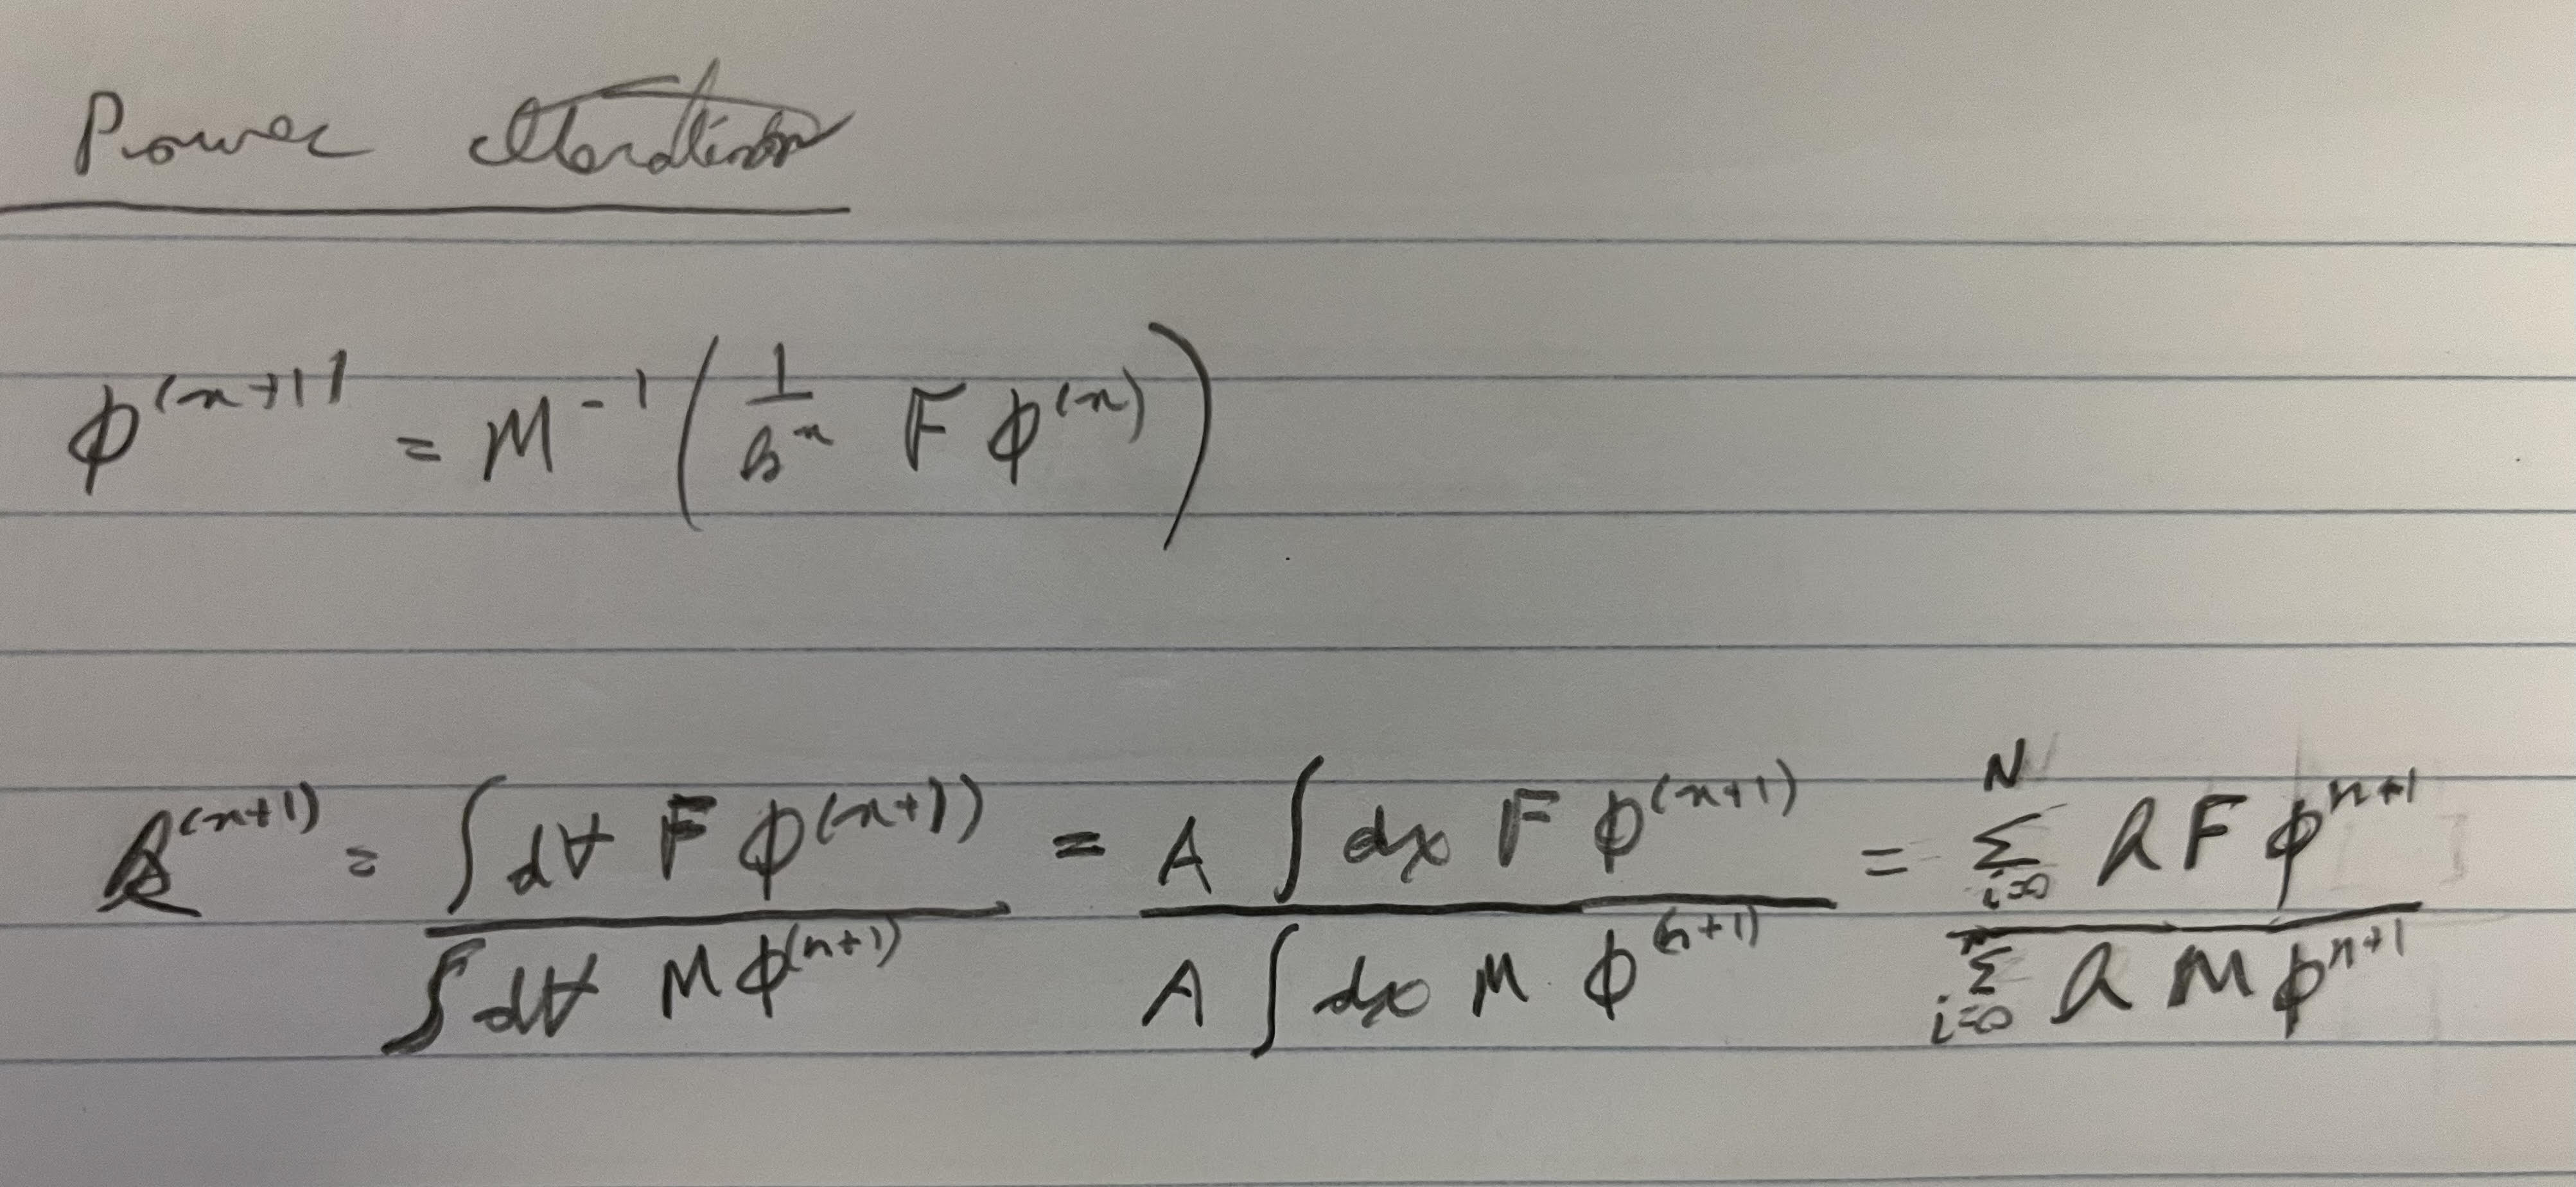 Power Iteration
ϕ^(n+1) = M^-1 ( 1/k^n F ϕ^(n) )
k^(n+1) = ∫dV F ϕ^(n+1) / ∫dV M ϕ^(n+1) = A ∫dx F ϕ^(n+1) / A ∫dx M ϕ^(n+1) = Σ_{i=0}^N h F ϕ^n+1 / Σ_{i=0}^n h M ϕ^n+1